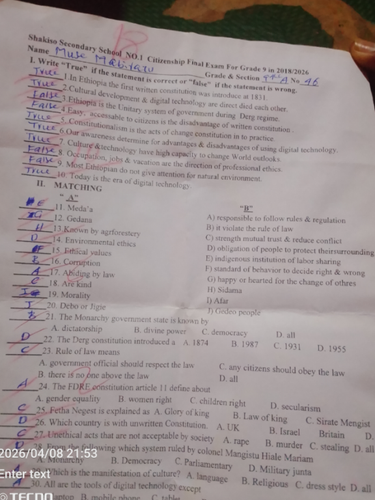 Shakiso Secondary School NO.1 Citizenship Final Exam For Grade 9 in 2018/2026
Name Grade & Section A No 46
I. Write "True" if the statement is correct or "false" if the statement is wrong.
True 1.In Ethiopia the first written constitution was introduce at 1831.
True 2.Cultural development & digital technology are direct died each other.
False 3.Ethiopia is the Unitary system of government during Derg regime.
False 4. Easy, accessible to citizens is the disadvantage of written constitution.
True 5. Constitutionalism is the acts of change constitution in to practice.
True 6.Our awareness determine for advantages & disadvantages of using digital technology.
True 7. Culture &technology have high capacity to change World outlooks.
False 8. Occupation, jobs & vacation are the direction of professional ethics.
False 9. Most Ethiopian do not give attention for natural environment.
True 10. Today is the era of digital technology
II. MATCHING
"A" "B"
E 11. Meda'a A) responsible to follow rules & regulation
12. Gedana B) it violate the rule of law
H 13.Known by agrforestery C) strengh mutual trust & reduce conflict
D 14. Environmental ethics D) obligation of people to protect theirsurrounding
15. Ethical values E) indigenous institution of labor sharing
B 16. Corruption F) standard of behavior to decide right & wrong
A 17. Abding by law G) happy or hearted for the change of othres
C 18. Are kind H) Sidama
19. Morality I) Afar
I 20. Debo or Jigie J) Gedeo people
B 21. The Monarchy government state is known by
A. dictatorship B. divine power C. democracy D. all
D 22. The Derg constitution introduced a A. 1874 B. 1987 C. 1931 D. 1955
C 23. Rule of law means
A. government official should respect the law C. any citizens should obey the law
B. there is no one above the law D. all
A 24. The FDRE constitution article 11 define about
A. gender equality B. women right C. children right D. secularism
C 25. Fetha Negest is explained as A. Glory of king B. Law of king C. Sirate Mengist
D 26. Which country is with unwritten Constitution. A. UK B. Israel Britain D.
C 27. Unethical acts that are not acceptable to society A. rape B. murder C. stealing D. all
28. From the following which system ruled by colonel Mangistu Hiale Mariam
A. Monarchy B. Democracy C Parliamentary D. Military junta
which is the manifestation of culture? A. language B. Religious C. dress style D. all
A 30. All are the tools of digital technology except
laptop B. mobile phone C. tables
2026/04/08 21:53
Enter text
TECNO